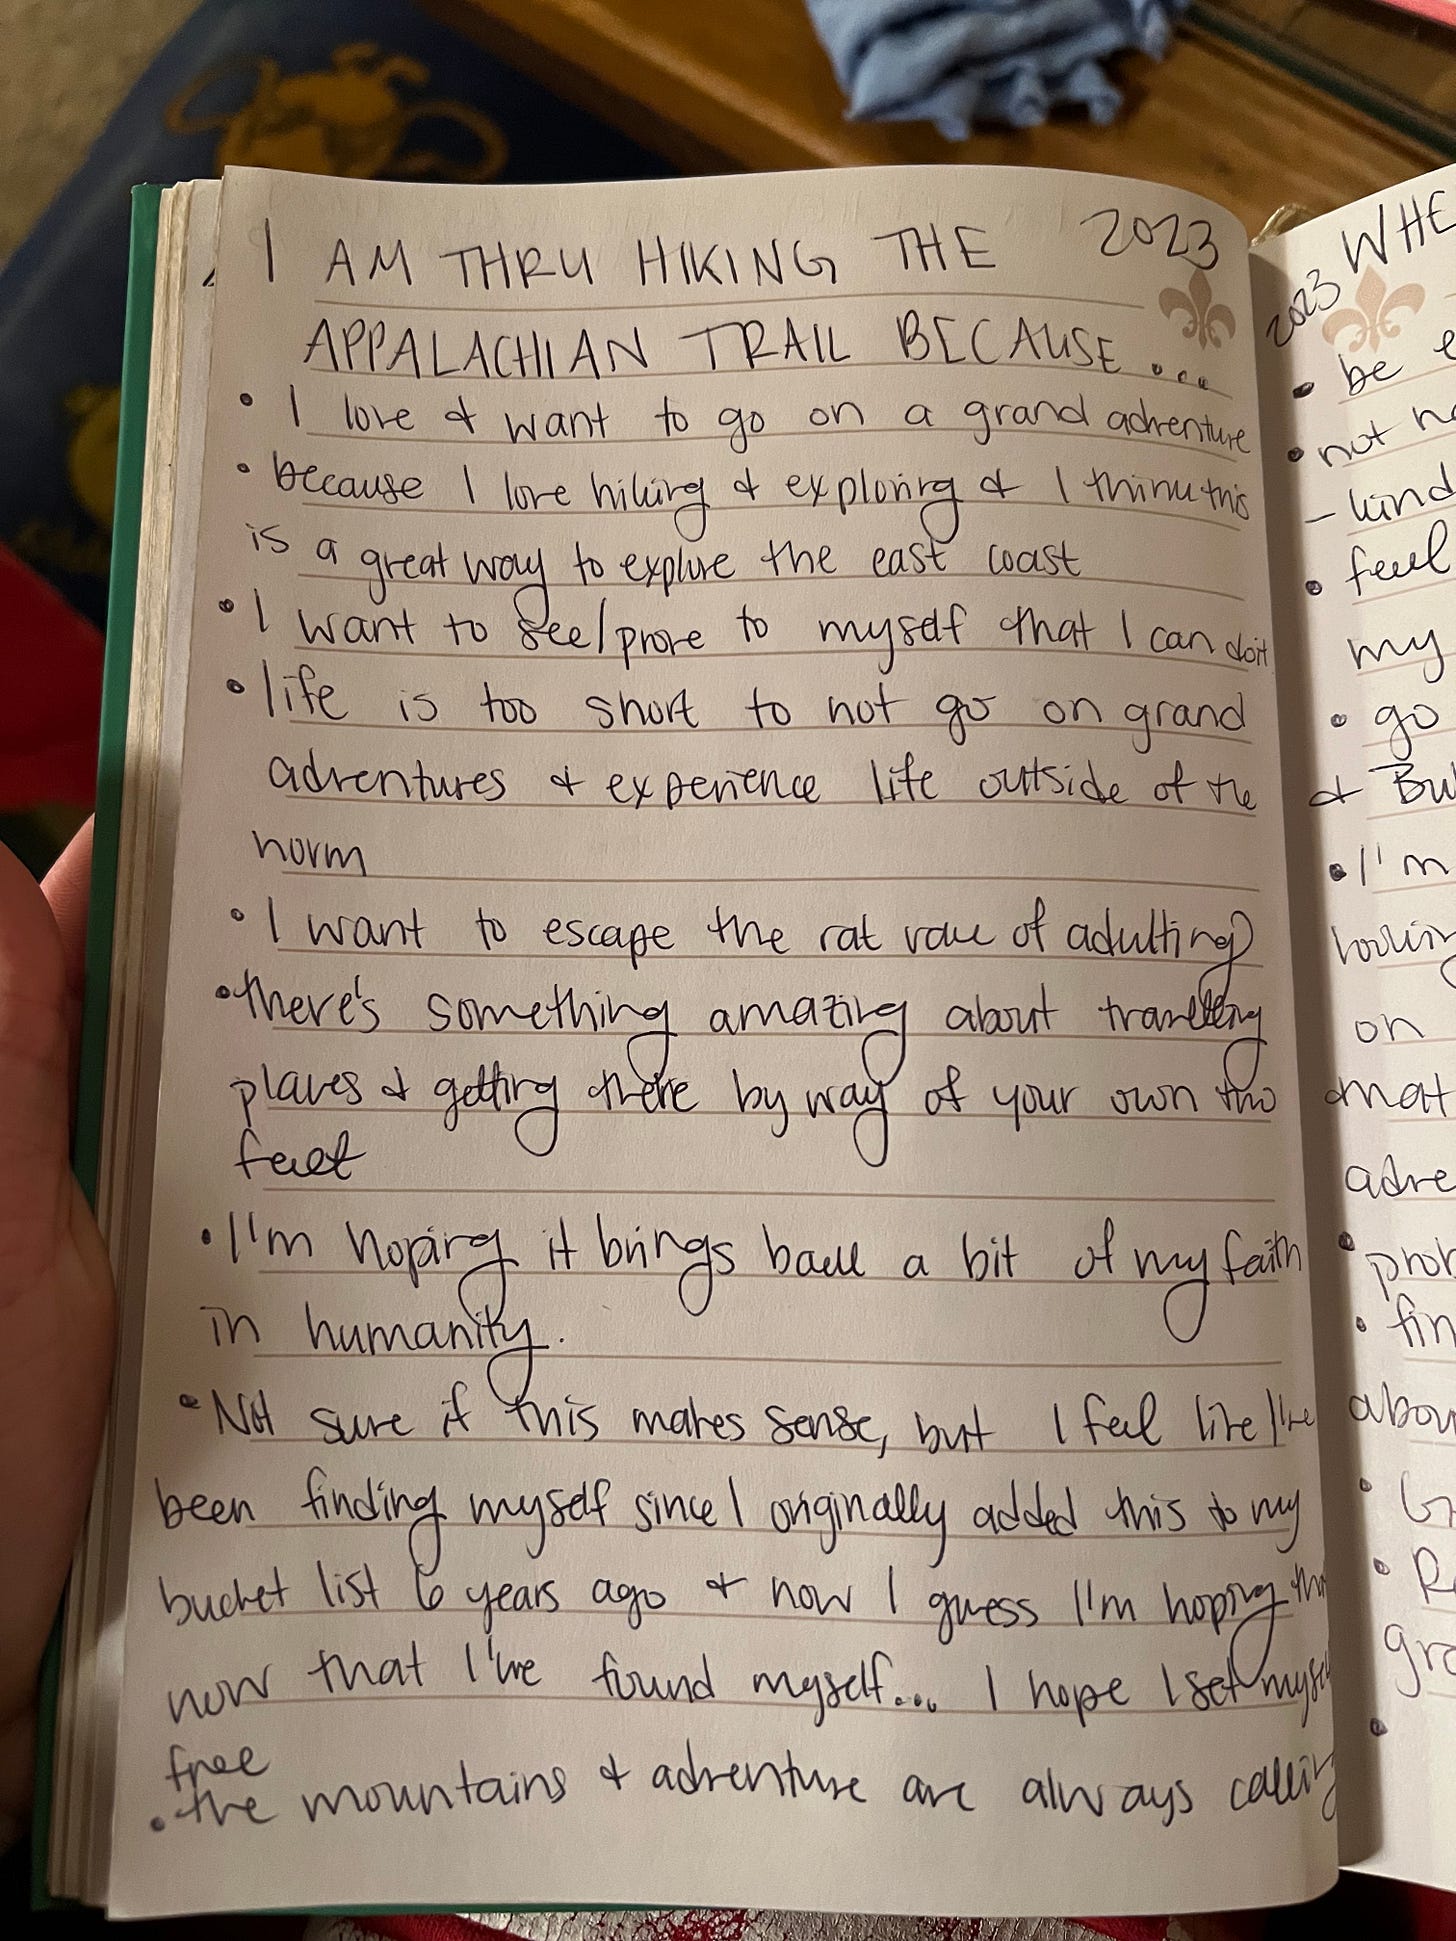 I AM THRU HIKING THE 2023
APPALACHIAN TRAIL BECAUSE...
• I love & want to go on a grand adventure
• because I love hiking & exploring & I think this
is a great way to explore the east coast
• I want to see/prove to myself that I can do it
• life is too short to not go on grand
adventures & experience life outside of the
norm
• I want to escape the rat race of adulting
• there's something amazing about traveling
places & getting there by way of your own two
feet
• I'm hoping it brings back a bit of my faith
in humanity.
• Not sure if this makes sense, but I feel like I've
been finding myself since I originally added this to my
bucket list 6 years ago & now I guess I'm hoping
now that I've found myself... I hope I set myself
free
• the mountains & adventure are always calling
2023 WHE
• be e
• not
- kind
• feel
my
• go
& Bu
• I'm
on
mat
adve
• prov
• fin
abou
•
• R
gr
•